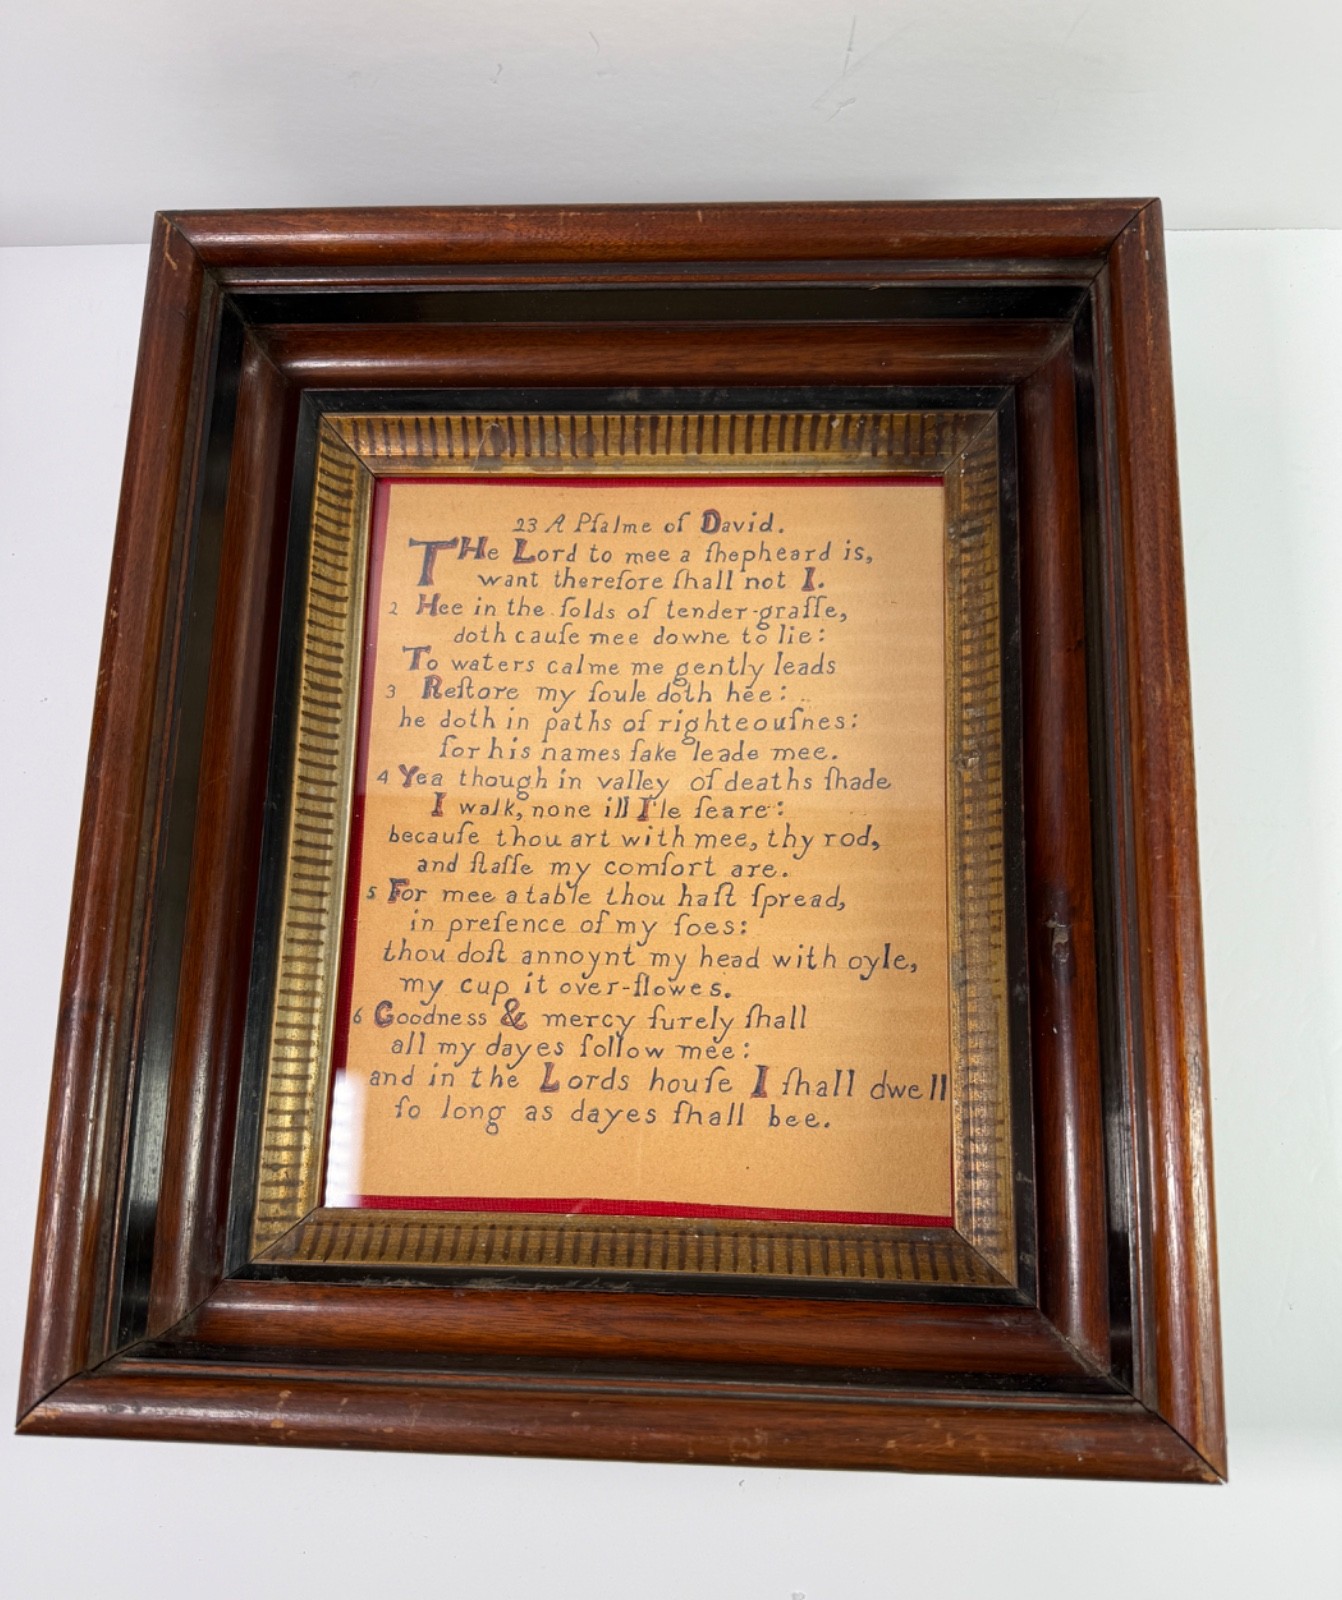 23 A Pſalme of David.
THe Lord to mee a ſhepheard is,
want therefore ſhall not I.
2 Hee in the folds of tender-graſſe,
doth cauſe mee downe to lie:
To waters calme me gently leads
3 Reſtore my ſoule doth hee:
he doth in paths of righteouſnes:
for his names ſake leade mee.
4 Yea though in valley of deaths ſhade
I walk, none ill I'le feare:
becauſe thou art with mee, thy rod,
and ſtaffe my comfort are.
5 For mee a table thou haſt ſpread,
in preſence of my foes:
thou doſt annoynt my head with oyle,
my cup it over-flowes.
6 Goodness & mercy ſurely ſhall
all my dayes follow mee:
and in the Lords houſe I ſhall dwell
ſo long as dayes ſhall bee.